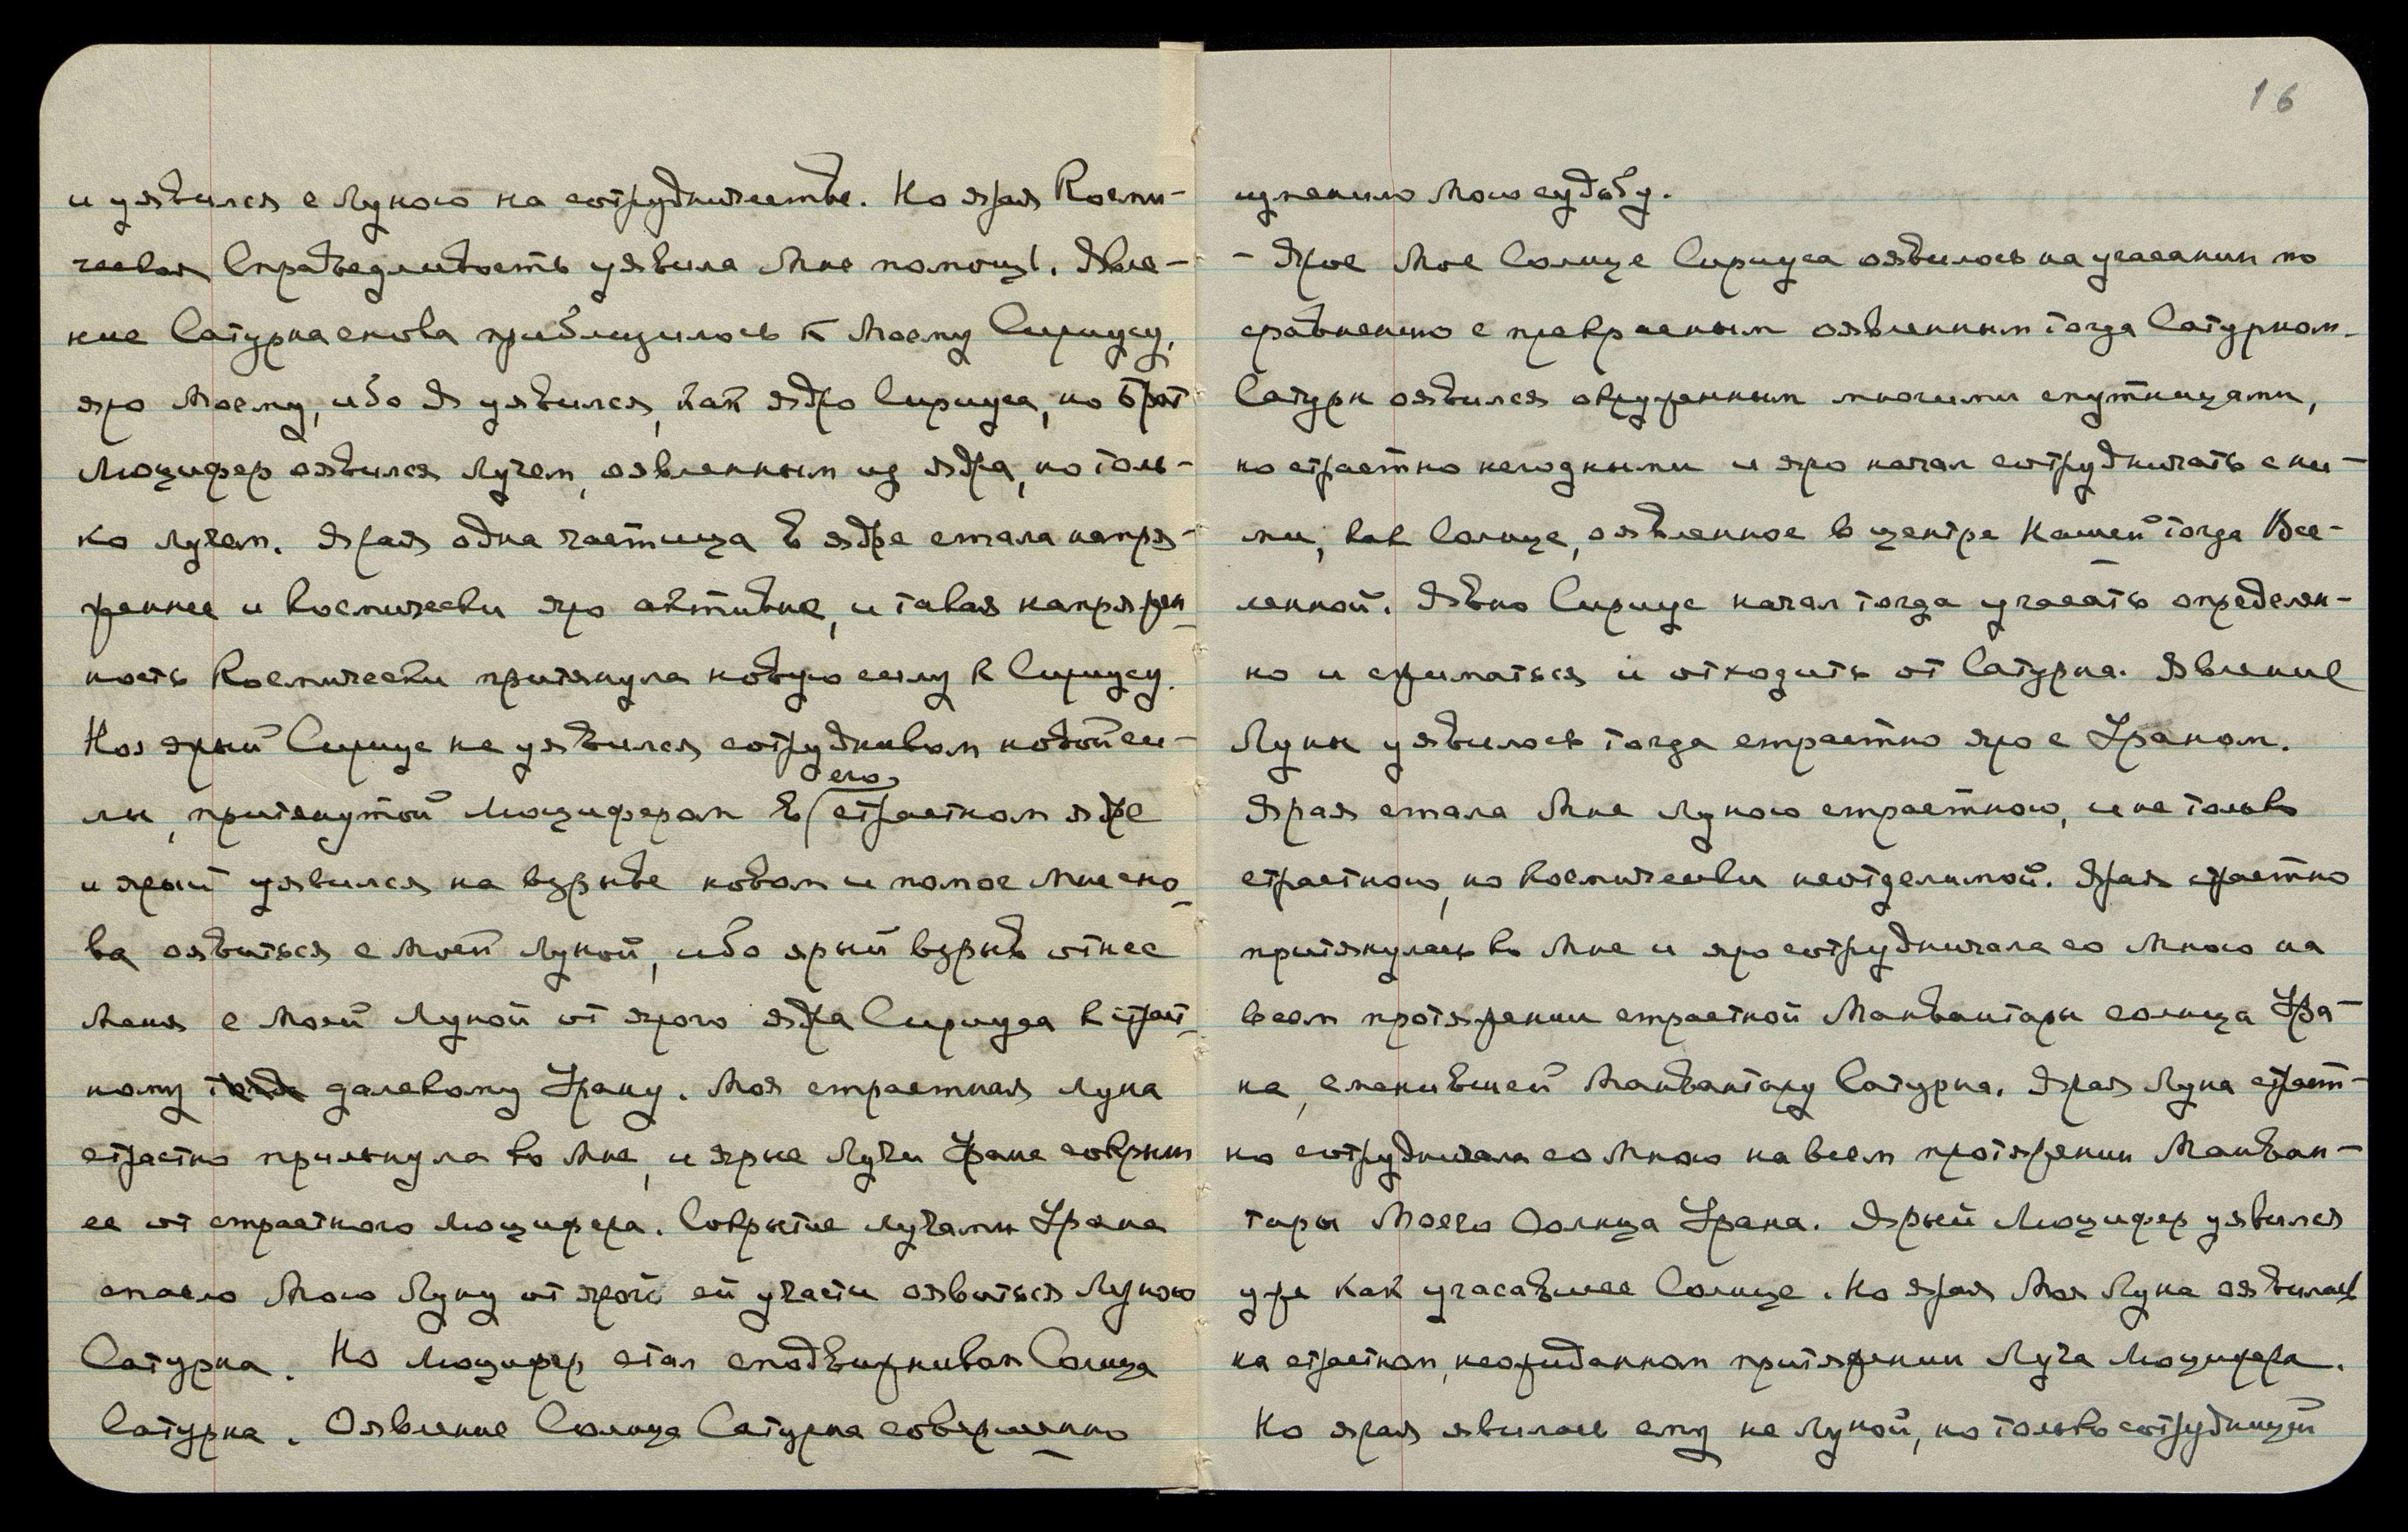 и уявился с Луною на сотрудничестве. Но ярая Косми-
ческая Справедливость уявила Мне помощь. Явле-
ние Сатурна снова приблизилось к Моему Сириусу,
яро Моему, ибо Я уявился, как ядро Сириуса, но брат
Люцифер оявился лучем, оявленным из ядра, но толь-
ко лучем. Ярая одна частица в ядре стала напря-
женнее и космически яро активнее, и такая напряжен-
ность Космически притянула новую силу к Сириусу.
Но ярый Сириус не уявился сотрудником новой си-
лы, притянутой Люцифером в его страстном ядре
и ярый уявился на взрыве новом и помог Мне сно-
ва оявиться с Моей Луной, ибо ярый взрыв отнес
Меня с Моей Луной от ярого ядра Сириуса к страст-
ному далекому Урану. Моя страстная Луна
страстно прильнула ко Мне, и ярые Лучи Урана сокрыли
ее от страстного Люцифера. Сокрытие лучами Урана
спасло Мою Луну от ярой ей участи оявиться Луною
Сатурна. Но Люцифер стал сподвижником Солнца
Сатурна. Оявление Солнца Сатурна совершенно
16
изменило Мою судьбу.
- Ярое Мое Солнце Сириуса оявилось на угасании по
сравнению с прекрасным оявленным тогда Сатурном.
Сатурн оявился окруженным многими спутницами,
но страстно негодными и яро начал сотрудничать с ни-
ми, как Солнце, оявленное в центре Нашей тогда Все-
ленной. Явно Сириус начал тогда угасать определен-
но и сжиматься и отходить от Сатурна. Явление
Луны уявилось тогда страстно яро с Ураном.
Ярая стала Мне Луною страстною, и не только
страстною, но космически неотделимой. Ярая страстно
притянулась ко Мне и яро сотрудничала со Мною на
всем протяжении страстной Манвантары солнца Ура-
на, сменившей Манвантару Сатурна. Ярая Луна страст-
но сотрудничала со Мною на всем протяжении Манван-
тары Моего Солнца Урана. Ярый Люцифер уявился
уже как угасавшее Солнце. Но ярая Моя Луна оявилась
на страстном, неожиданном притяжении Луча Люцифера.
Но ярая явилась ему не Луной, но только сотрудницей